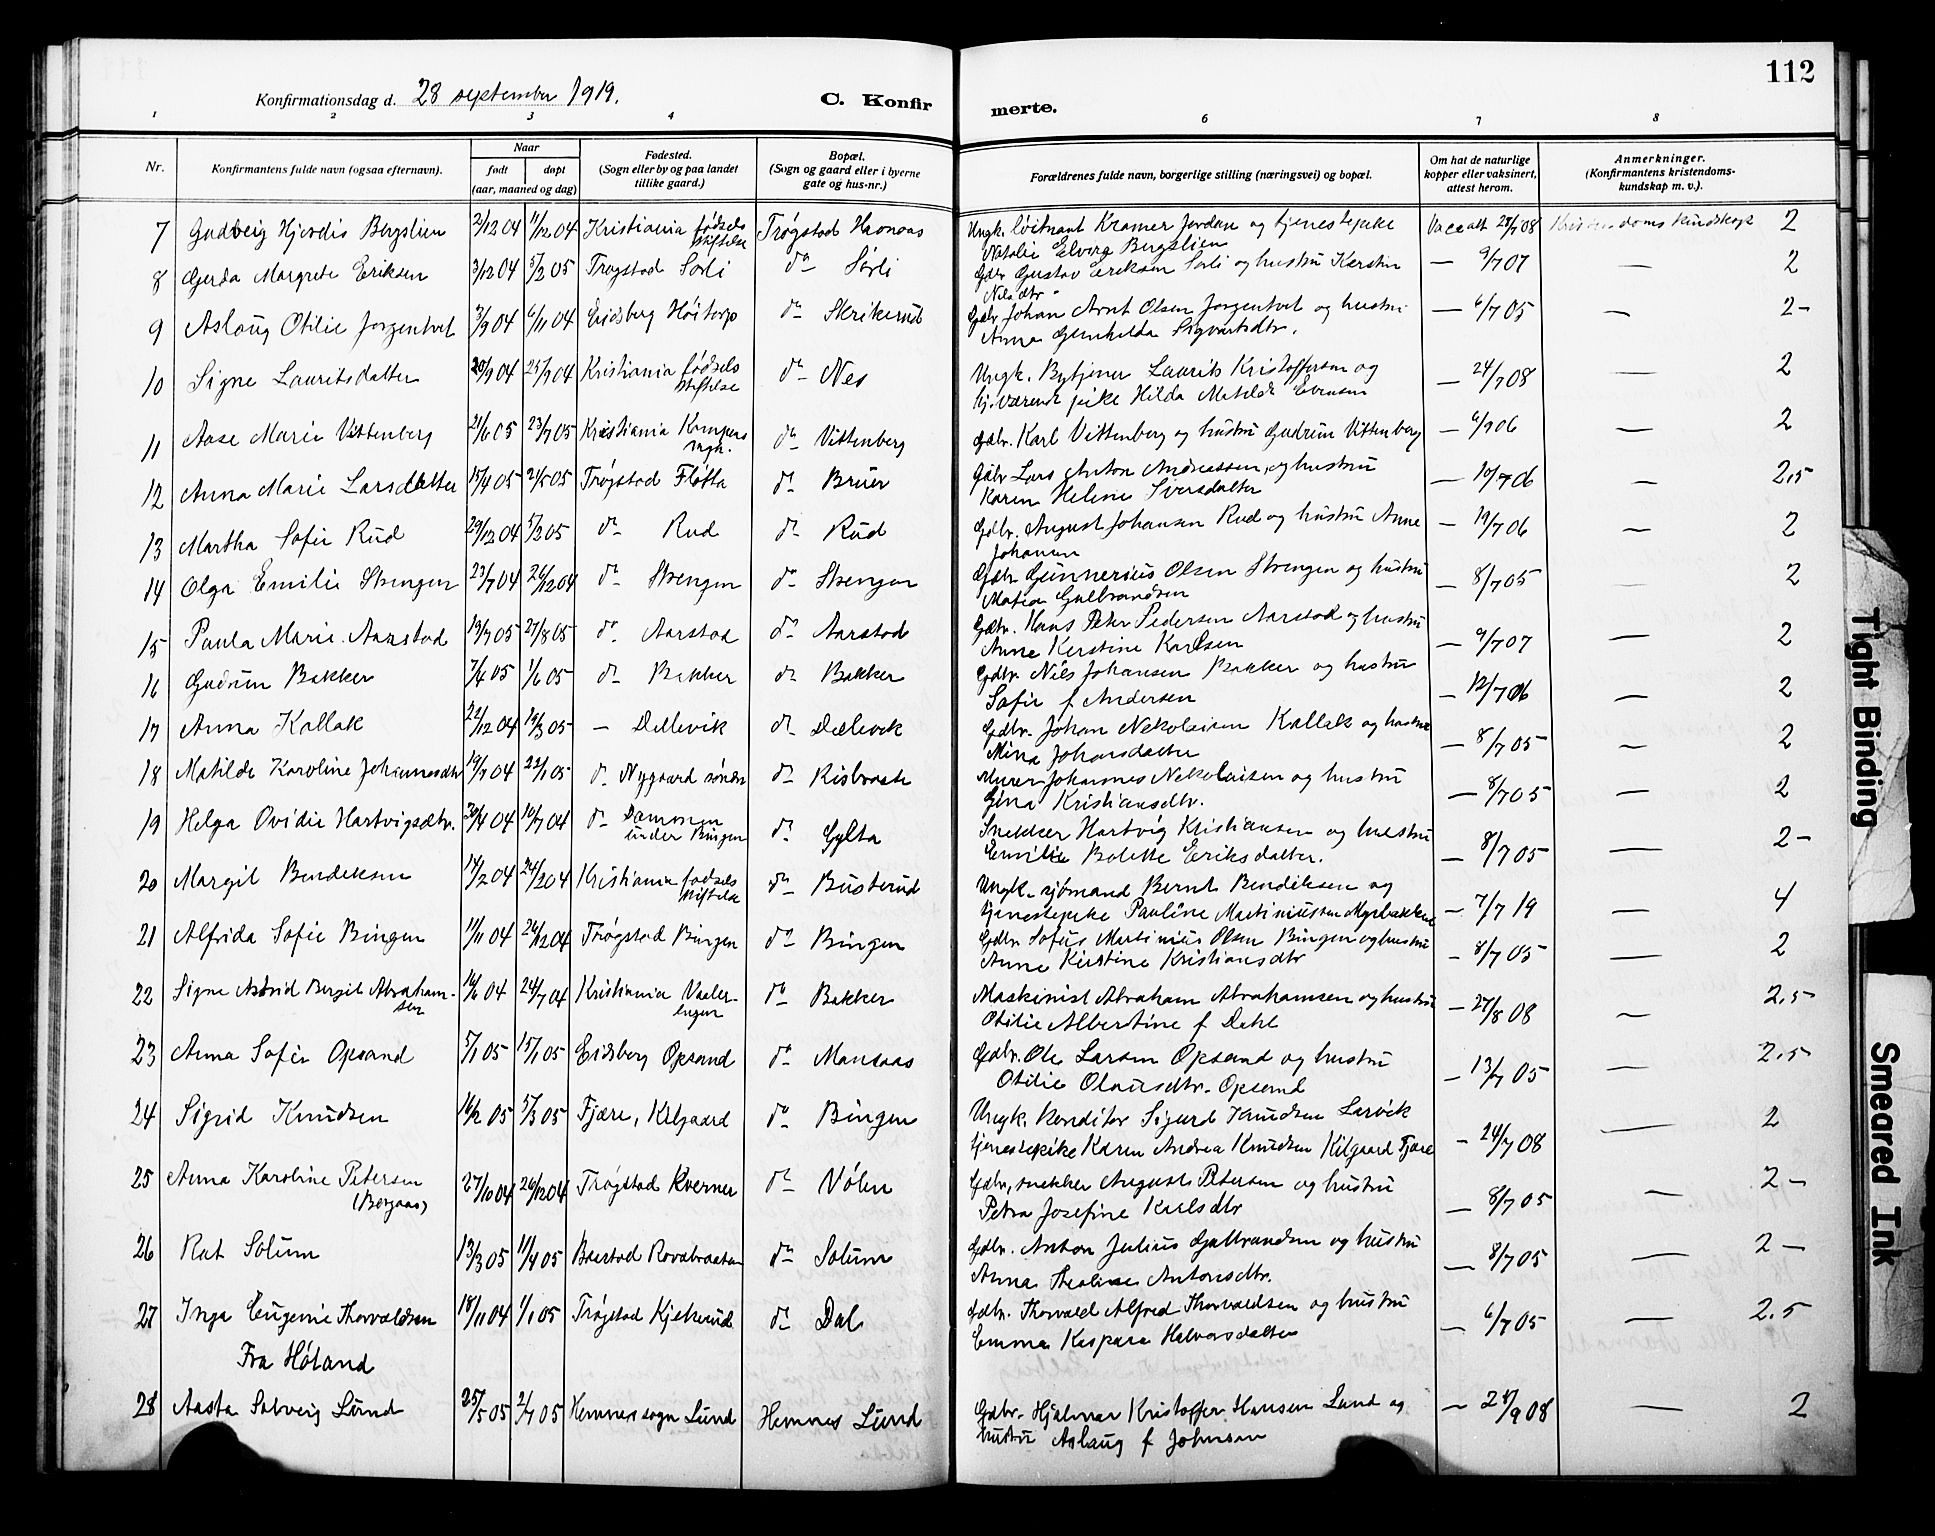 112
Konfirmationsdag d. 28 september 1919.
C. Konfirmerte.
1 2 3 4 6 7 8
Nr.
Konfirmantens fulde navn (ogsaa efternavn).
Naar
født
døpt
(aar, maaned og dag)
Fødested.
(Sogn eller by og paa landet
tillike gaard.)
Bopæl.
(Sogn og gaard eller i byerne
gate og hus-nr.)
Forældrenes fulde navn, borgerlige stilling (næringsvei) og bopæl.
Om hat de naturlige
kopper eller vaksinert,
attest herom.
Anmerkninger.
(Konfirmantens kristendoms-
kundskap m. v.).
7 Gudveig Hjordis Bergslien 2/12 04 11/12 04 Kristiania fødsels stiftelse Trøgstad Havnaas Ungk. løitnant Kramer Jordan og tjenestepike Natalie Elvira Bergslien 08 Kristendomskundskap 2
8 Gerda Margrete Eriksen 3/12 04 5/2 05 Trøgstad Sørli do Sørli Gdbr Gustav Eriksen Sørli og hustru Kerstin Nilsdtr — 9/7 07 — 2
9 Aslaug Otilie Jorgentvet 3/9 04 6/11 04 Eidsberg Høitorp do Skrikerud Gdbr Johan Arnt Olsen Jorgentvet og hustru Anna Gunhilda Sigvartsdtr. — 6/7 05 — 2-
10 Signe Lauritsdatter 20/9 04 25/9 04 Kristiania fødsels stiftelse do Nes Ungk. Bytjener Laurits Kristoffersen og hj.værende pike Hilda Matilde Evensen — 24/7 08 — 2
11 Aase Marie Vittenberg 21/6 05 23/7 05 Kristiania Kampens do Vittenberg Gdbr. Karl Vittenberg og hustru Gudrun Vittenberg — 6/9 06 — 2
12 Anna Marie Larsdatter 15/4 05 21/5 05 Trøgstad Fløtta do Bruer Gdbr Lars Anton Andreassen og hustru Karen Helene Iversdatter — 10/7 06 — 2,5
13 Martha Sofie Rud 29/12 04 5/2 05 do Rud do Rud Gdbr. August Johansen Rud og hustru Anne Johansen — 19/7 06 — 2
14 Olga Emilie Strengen 23/7 04 26/12 04 do Strengen do Strengen Gdbr. Gunnerius Olsen Strengen og hustru Matea Gulbrandsen — 8/7 05 — 2
15 Paula Marie Aarstad 19/7 05 27/8 05 do Aarstad do Aarstad Gdbr. Hans Peter Pedersen Aarstad og hustru Anne Kerstine Karlsen — 9/7 07 — 2
16 Gudrun Bakker 7/4 05 1/6 05 do Bakker do Bakker Gdbr. Nils Johansen Bakker og hustru Sofie f Andersen — 12/7 06 — 2
17 Anna Kallak 22/12 04 19/3 05 — Dillevik do Dillevik Gdbr. Johan Nekolaisen Kallak og hustru Mina Johansdatter — 8/7 05 — 2
18 Matilde Karoline Johannesdtr 19/7 04 22/1 05 do Nygaard søndre do Risbraate Murer Johannes Nekolaisen og hustru Gina Kristiansdtr. — 8/7 05 — 2
19 Helga Ovidie Hartvigsdtr. 30/4 04 10/7 04 do Dammen under Bingen do Gylta Snekker Hartvig Kristiansen og hustru Emilie Bolette Eriksdatter. — 8/7 05 — 2-
20 Margit Bendiksen 17/2 04 24/2 04 Kristiania fødsels stiftelse do Busterud Ungk. sjømand Bernt Bendiksen og tjenestepike Pauline Martiniussen Myrbakken — 7/7 19 — 4
21 Alfrida Sofie Bingen 11/11 04 26/12 04 Trøgstad Bingen do Bingen Gdbr Sofus Martinius Olsen Bingen og hustru Anne Kirstine Kristiansdtr — 8/7 05 — 2
22 Signe Astrid Bergit Abraham-sen 10/6 04 24/7 04 Kristiania Vaaler-engen do Bakker Maskinist Abraham Abrahamsen og hustru Otilie Albertine f Dahl — 27/8 08 — 2,5
23 Anna Sofie Opsand 5/1 05 15/1 05 Eidsberg Opsand do Mansaas Gdbr. Ole Larsen Opsand og hustru Otilie Olausdtr. Opsand — 13/7 05 — 2,5
24 Sigrid Knudsen 16/2 05 5/3 05 Fjære, Kilgaard do Bingen Ungk. konditor Sigurd Knudsen Larvik tjenestepike Karen Andrea Knudsen Kilgaard Fjære — 24/7 08 — 2
25 Anna Karoline Petersen (Borgaas) 27/10 04 26/12 04 Trøgstad Kverner do Vølen Gdbr, snekker August Petersen og hustru Petra Josefine Karlsdtr — 8/7 05 — 2-
26 Rut Solum 13/3 05 11/4 05 Baastad Rovabraaten do Solum Gdbr. Anton Julius Gulbrandsen og hustru Anna Antonsdtr. — 8/7 05 — 2-
27 Inga Eugenie Thorvaldsen 18/11 04 1/1 05 Trøgstad Kjekerud do Dal Gdbr. Thorvald Alfred Thorvaldsen og hustru Emma Kaspara Halvorsdatter — 6/7 05 — 2.5
Fra Høland
28 Aasta Solveig Lund 25/5 05 2/7 05 Hemnes sogn Lund Hemnes Lund Gdbr. Hjalmar Kristoffer Hansen Lund og hustru Aslaug f Johnsen — 9 08 — 2
Tight Binding
Smeared Ink